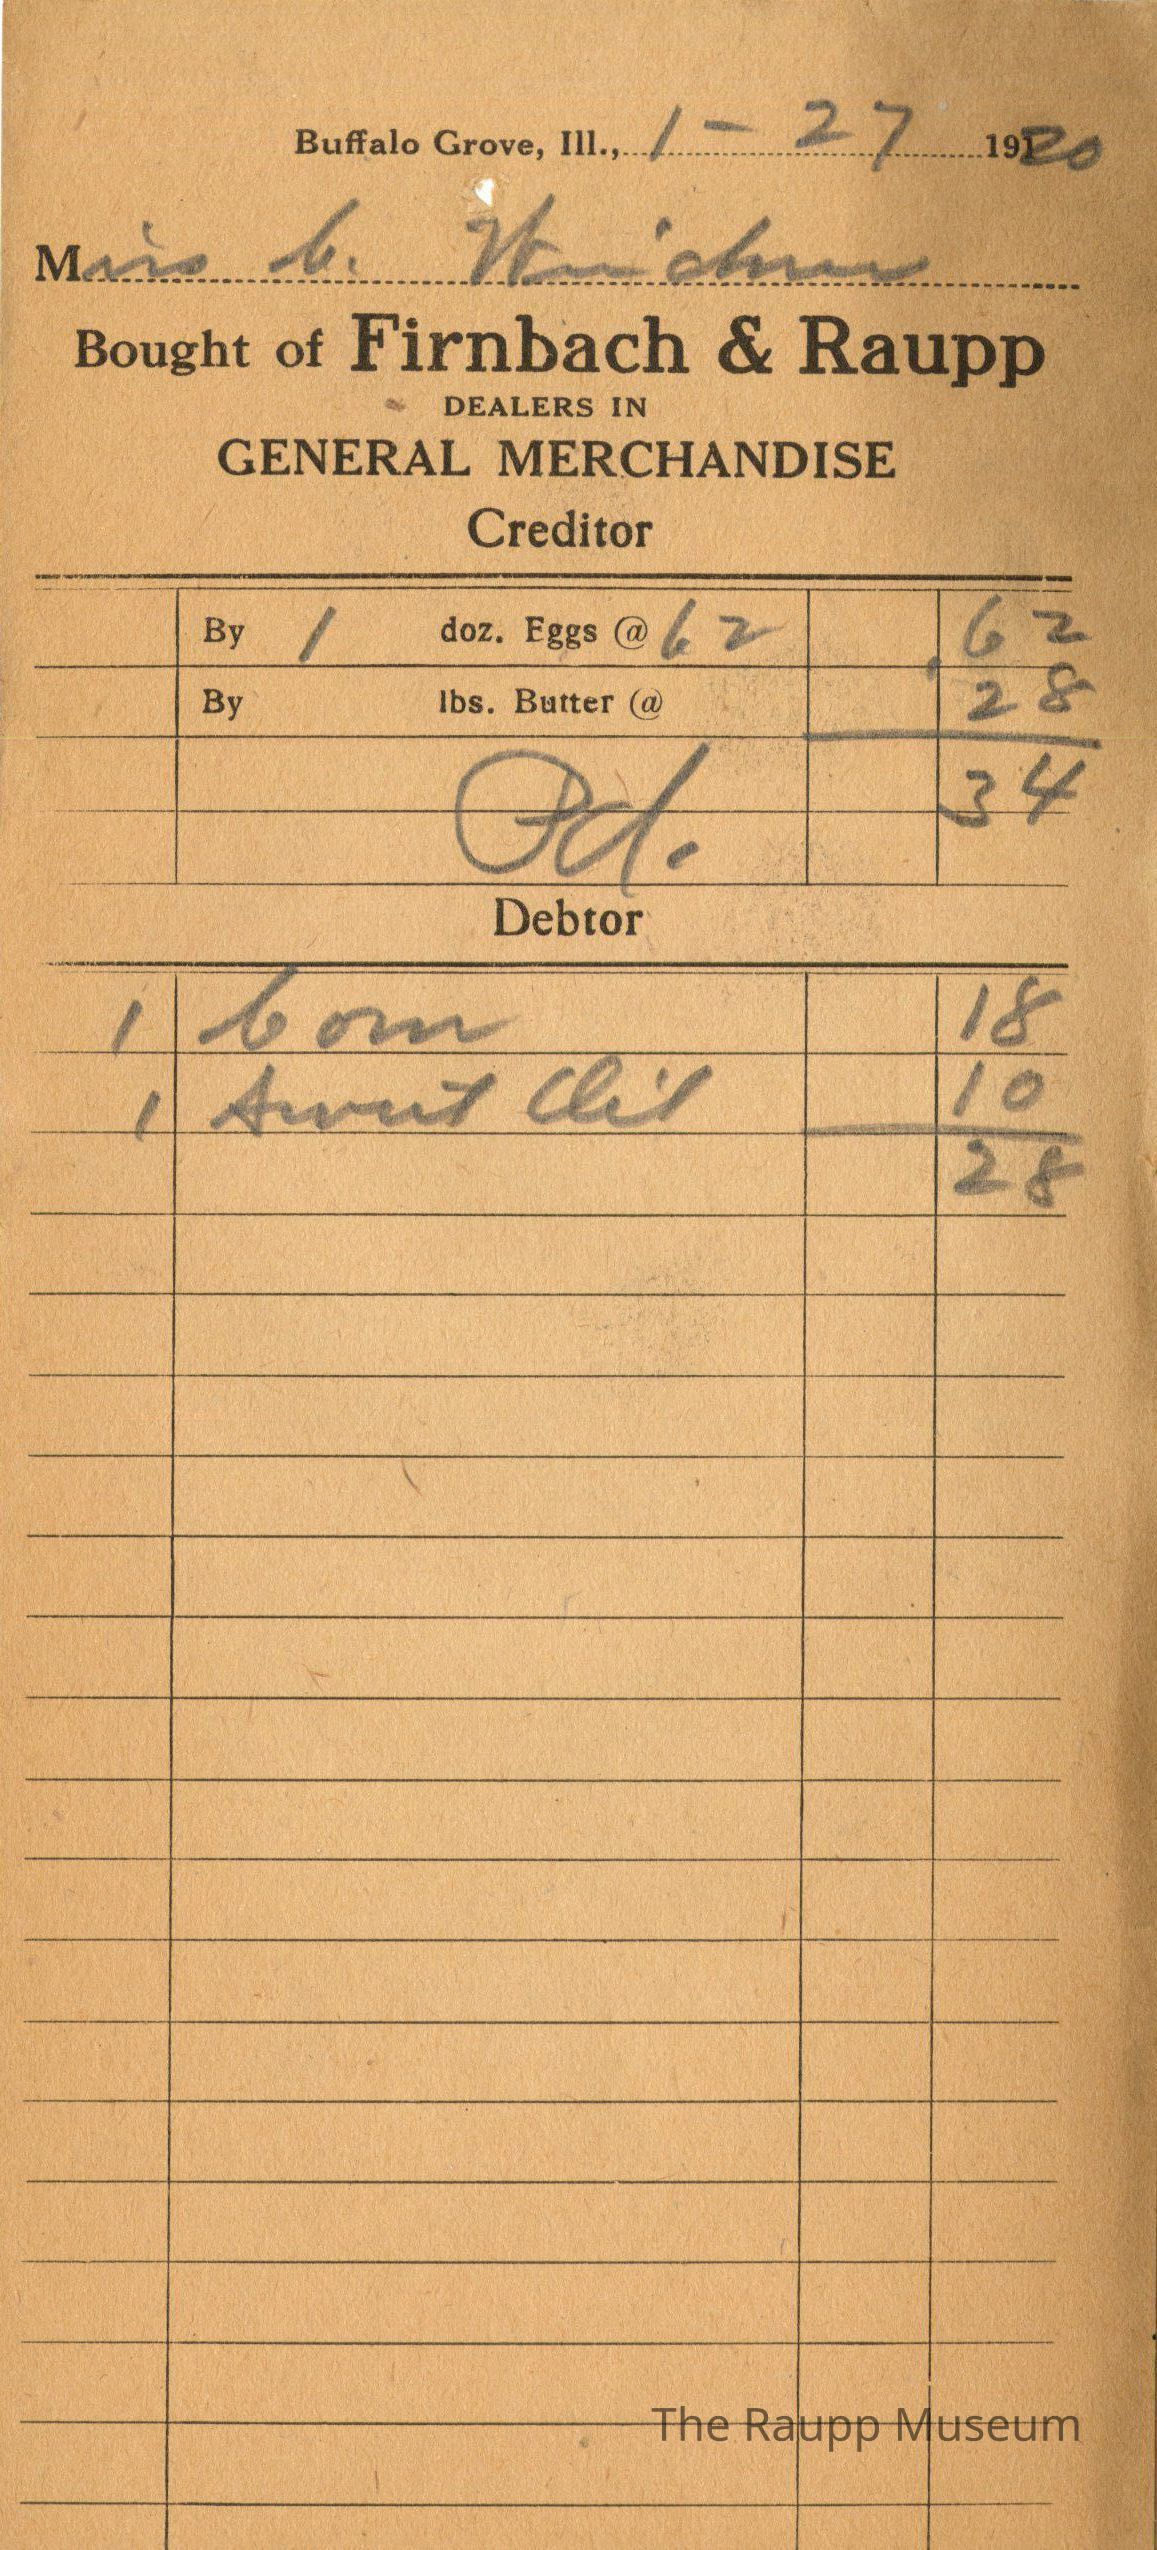 Buffalo Grove, Ill., 1 - 27 1920
Miss C.
Bought of Firnbach & Raupp
DEALERS IN
GENERAL MERCHANDISE
Creditor
By 1 doz. Eggs @ 62 62
By lbs. Butter @ 28
34
Pd.
Debtor
1 Corn 18
1 Sweet 10
28
The Raupp Museum